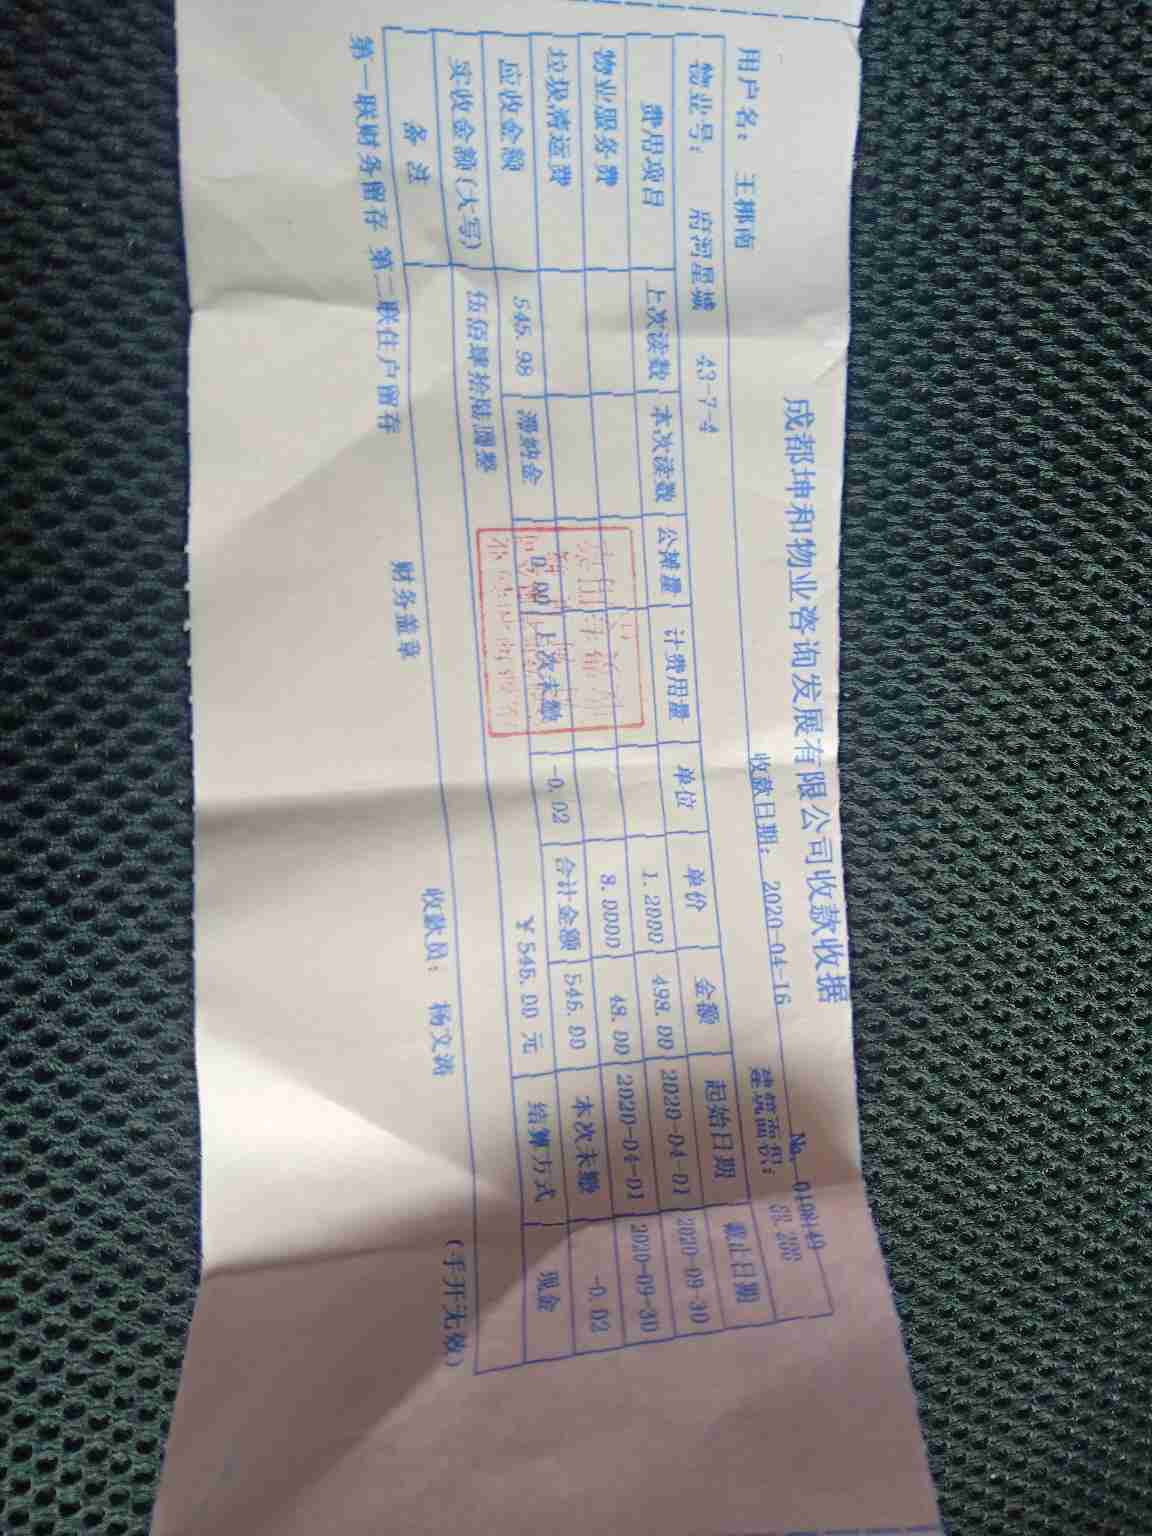 成都坤和物业咨询发展有限公司收款收据
No. 0108149
用户名: 王梛南 收款日期: 2020-04-16 建筑面积:
物业号: 府河星城 43-7-4
费用项目 上次读数 本次读数 公摊量 计费用量 单位 单价 金额 起始日期 截止日期
物业服务费 1.2000 498.00 2020-04-01 2020-09-30
垃圾清运费 8.0000 48.00 2020-04-01 2020-09-30
应收金额 545.98 滞纳金 0.00 上次未缴 -0.02 合计金额 546.00 本次未缴 -0.02
实收金额(大写) 伍佰肆拾陆圆整 ¥546.00 元 结算方式 现金
备注
第一联财务留存 第二联住户留存 财务盖章 收款员: 杨文 (手开无效)